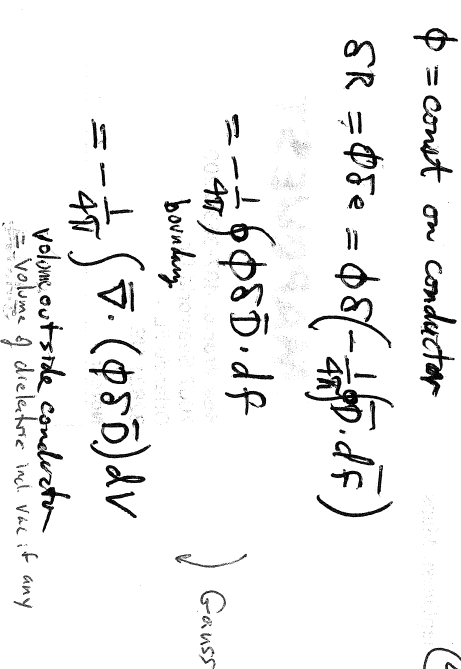 ϕ = const on conductor
δR = ϕδe = ϕδ(-1/4π ∮ D̄·df̄)
= -1/4π ∮ ϕδD̄·df̄
boundary
) Gauss
= -1/4π ∫ ∇̄·(ϕδD̄)dV
volume outside conductor
= volume of dielectric incl vac if any